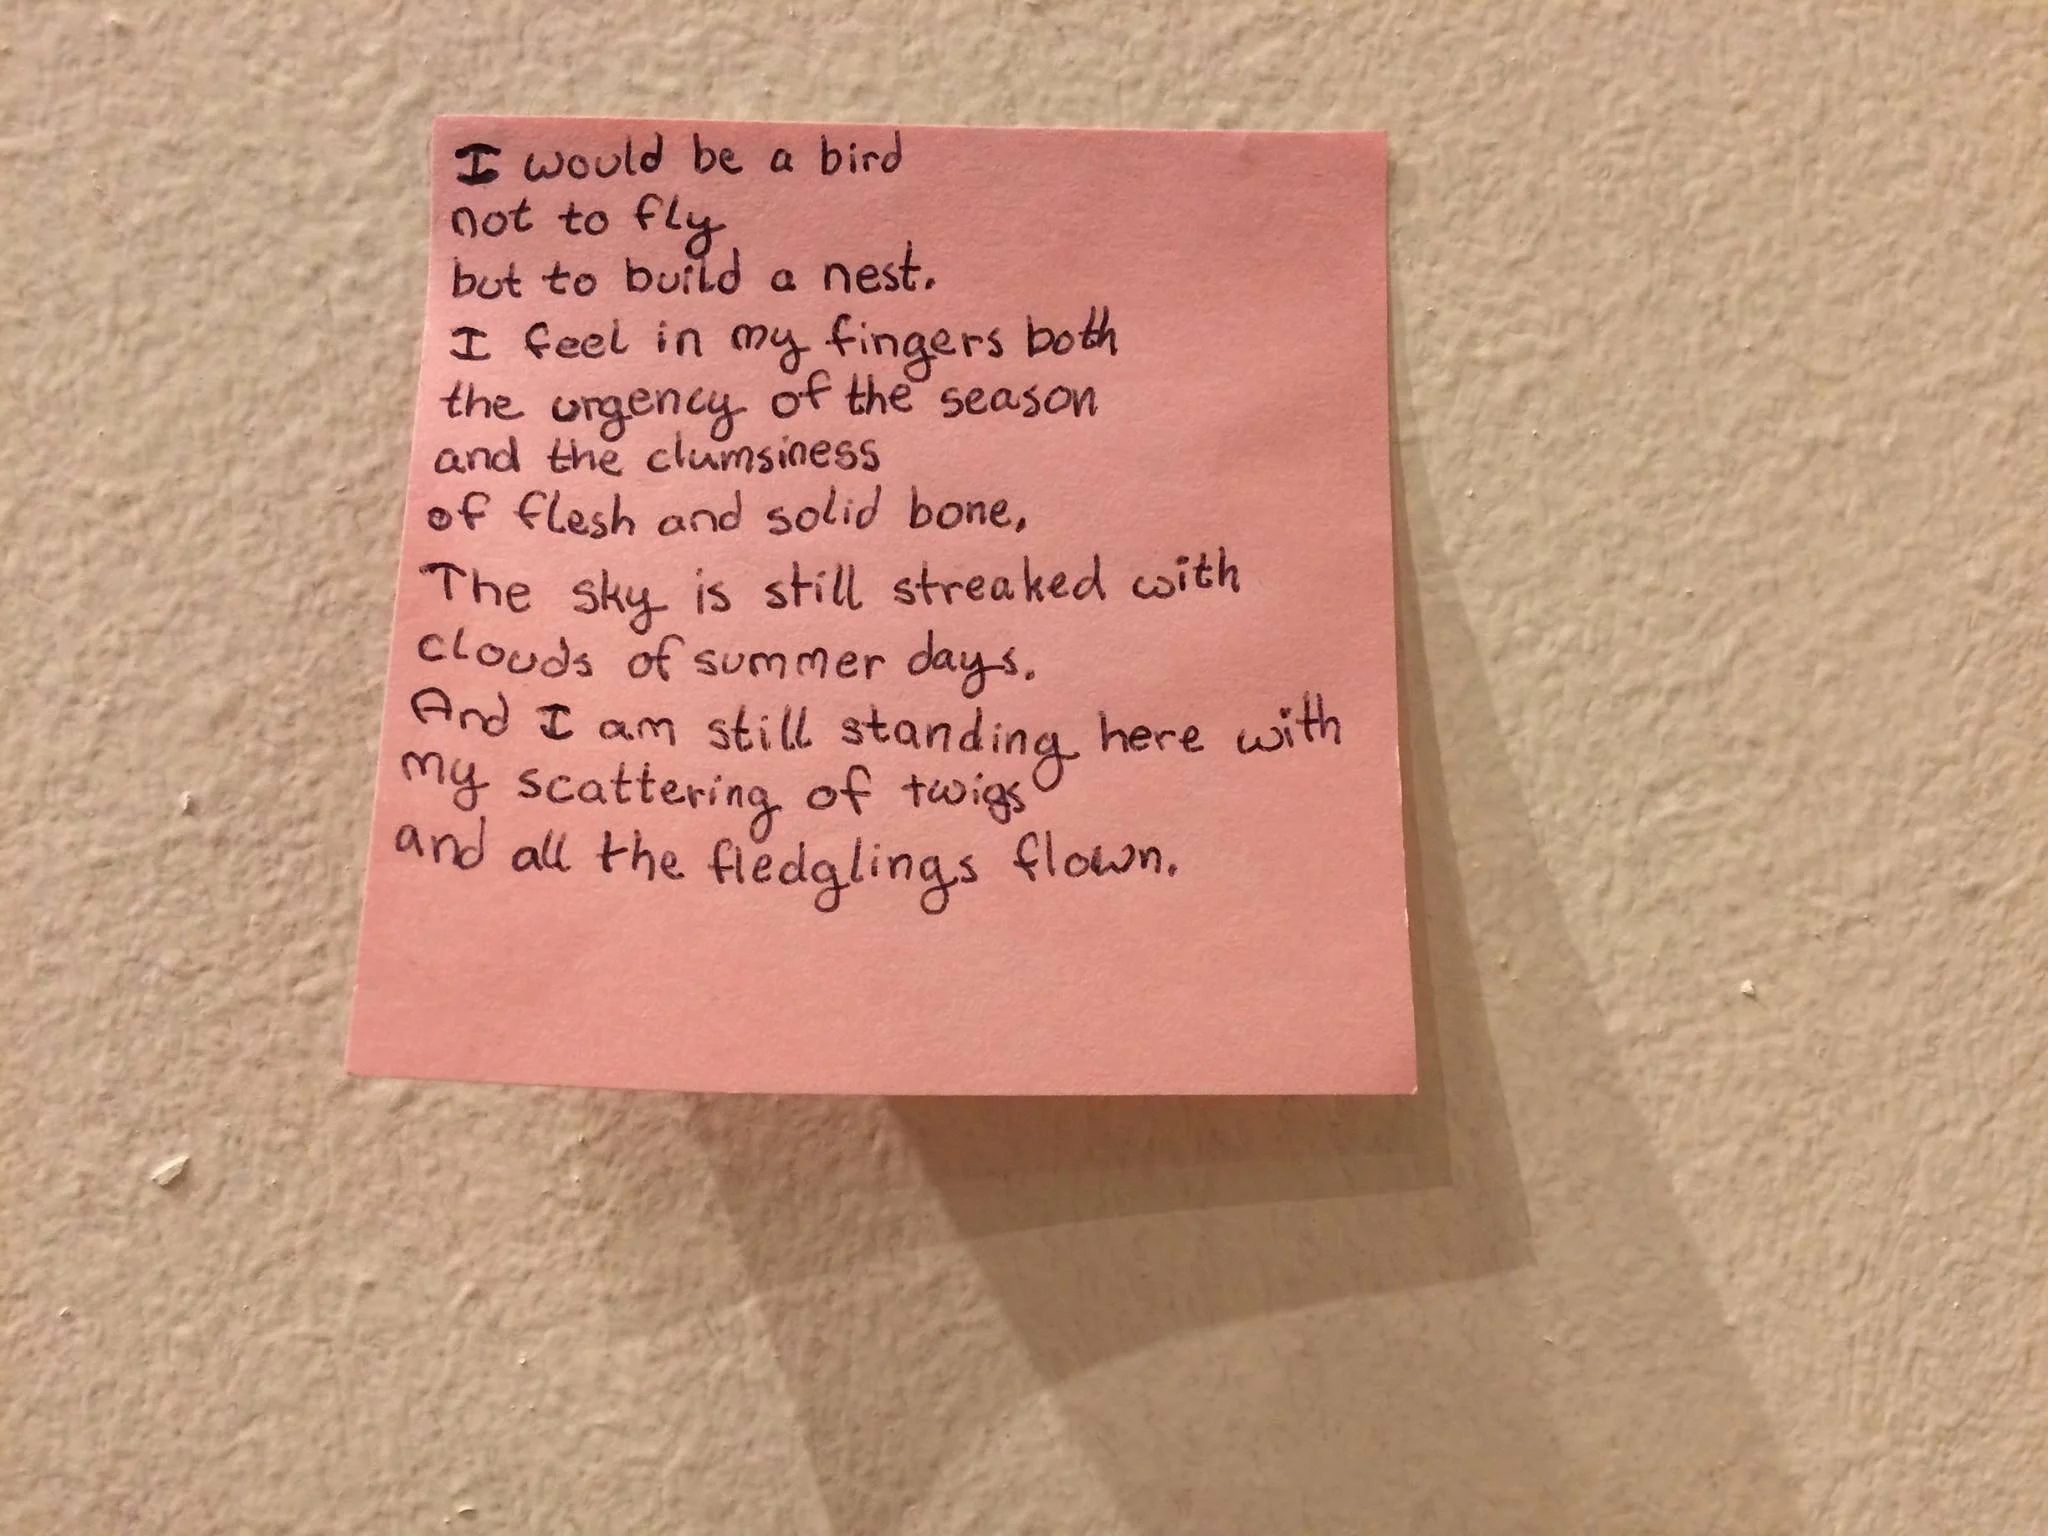 I would be a bird
not to fly
but to build a nest.
I feel in my fingers both
the urgency of the season
and the clumsiness
of flesh and solid bone,
The sky is still streaked with
clouds of summer days.
And I am still standing here with
my scattering of twigs
and all the fledglings flown.